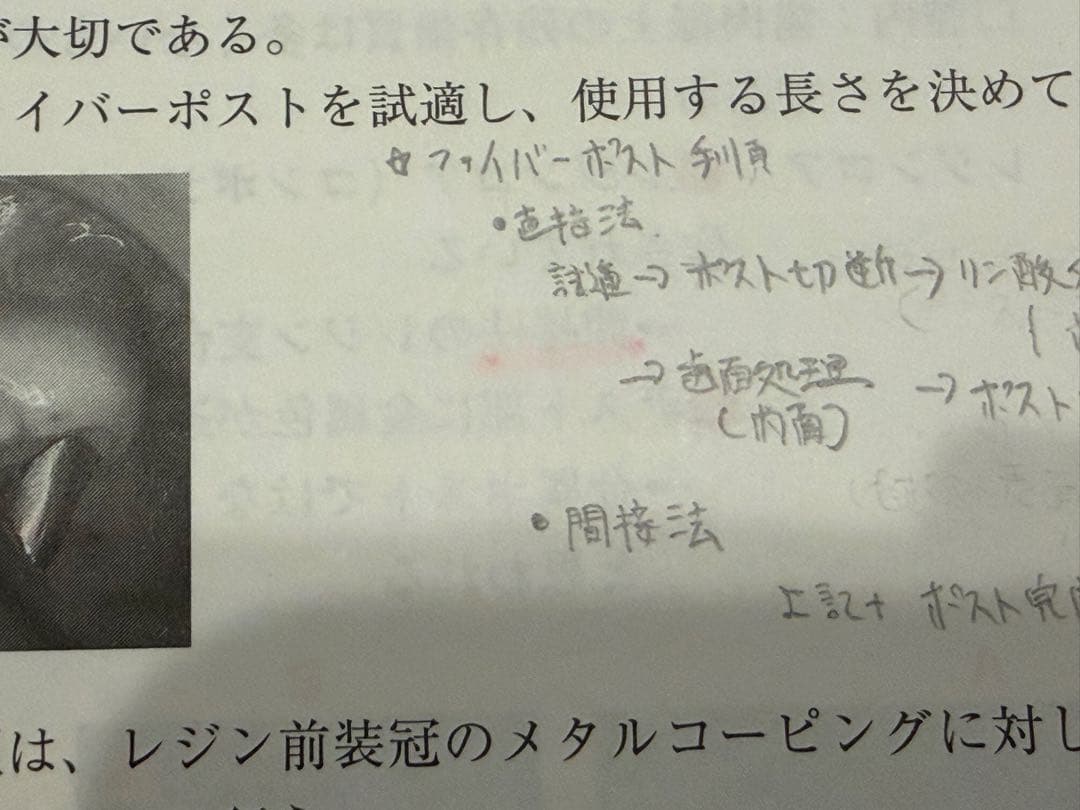 が大切である。
イバーポストを試適し、使用する長さを決めて
☆ ファイバーポスト 手順
・直接法
試適→ ポスト切断→ リン酸
→ 歯面処理 → ポスト
(内面)
・間接法
上記+ ポスト完
は、レジン前装冠のメタルコーピングに対し